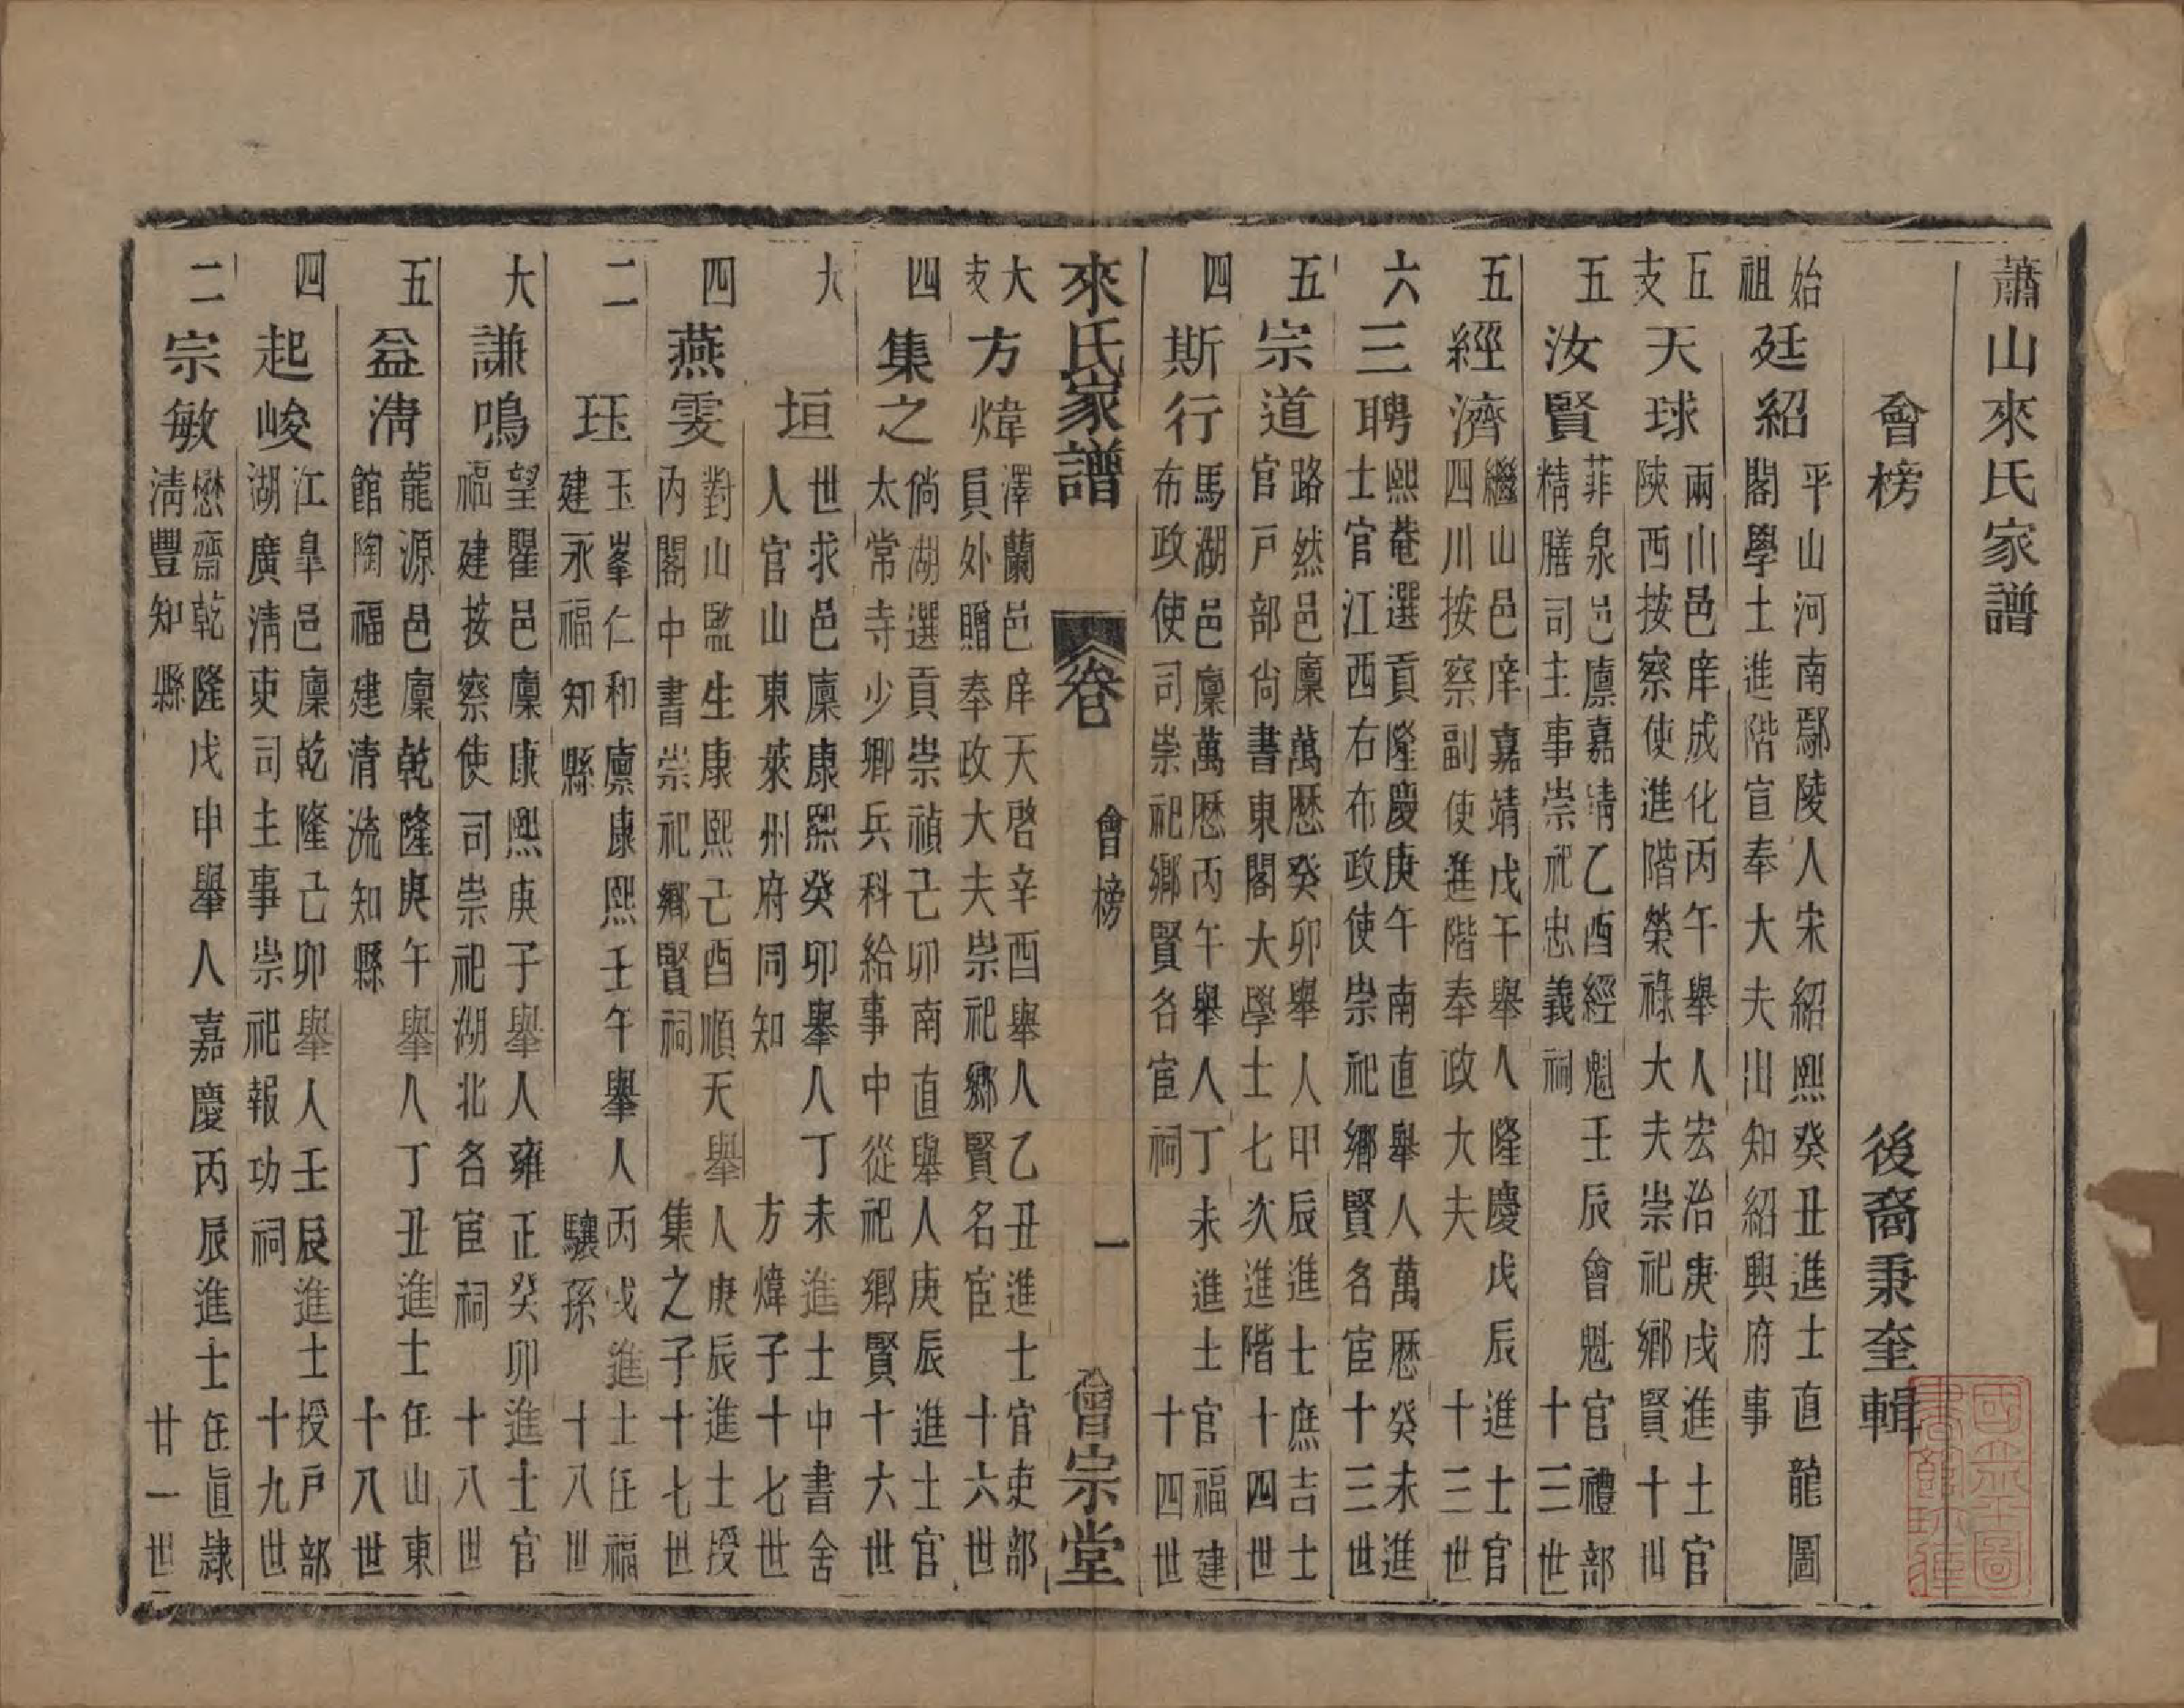 蕭山來氏家譜
會榜
後裔秉奎輯
始祖
廷紹
平山河南鄢陵人宋紹熙癸丑進士直龍圖
閣學士進階宣奉大夫出知紹興府事
五支
天球
兩山邑庠成化丙午舉人宏治庚戌進士官
陝西按察使進階榮祿大夫崇祀鄉賢 十世
五
汝賢
菲泉邑廩嘉靖乙酉經魁壬辰會魁官禮部
精膳司主事崇祀忠義祠 十三世
五
經濟
繼山邑庠嘉靖戊午舉人隆慶戊辰進士官
四川按察副使進階奉政大夫 十三世
六
三聘
熙菴選貢隆慶庚午南直舉人萬歷癸未進
士官江西右布政使崇祀鄉賢名宦 十三世
五
宗道
路然邑廩萬歷癸卯舉人甲辰進士庶吉士
官戸部尙書東閣大學士七次進階 十四世
四
斯行
馬湖邑廩萬歷丙午舉人丁未進士官福建
布政使司崇祀鄉賢名宦祠 十四世
來氏家譜
卷
會榜
一
會宗堂
大支
方煒
澤蘭邑庠天啓辛酉舉人乙丑進士官吏部
員外贈奉政大夫崇祀鄉賢名宦 十六世
四
集之
倘湖選貢崇禎己卯南直舉人庚辰進士官
太常寺少卿兵科給事中從祀鄉賢 十六世
大
垣
世求邑廩康熙癸卯舉人丁未進士中書舍
人官山東萊州府同知 方煒子 十七世
四
燕雯
對山監生康熙己酉順天舉人庚辰進士授
內閣中書崇祀鄉賢祠 集之子 十七世
二
珏
玉峯仁和廩康熙壬午舉人丙戌進士任福
建永福知縣 驤孫 十八世
大
謙鳴
望瞿邑廩康熙庚子舉人雍正癸卯進士官
福建按察使司崇祀湖北名宦祠 十八世
五
益淸
龍源邑廩乾隆庚午舉人丁丑進士任山東
館陶福建清流知縣 十八世
四
起峻
江臯邑廩乾隆己卯舉人壬辰進士授戸部
湖廣淸吏司主事崇祀報功祠 十九世
二
宗敏
懋齋乾隆戊申舉人嘉慶丙辰進士任直隸
淸豐知縣 廿一世